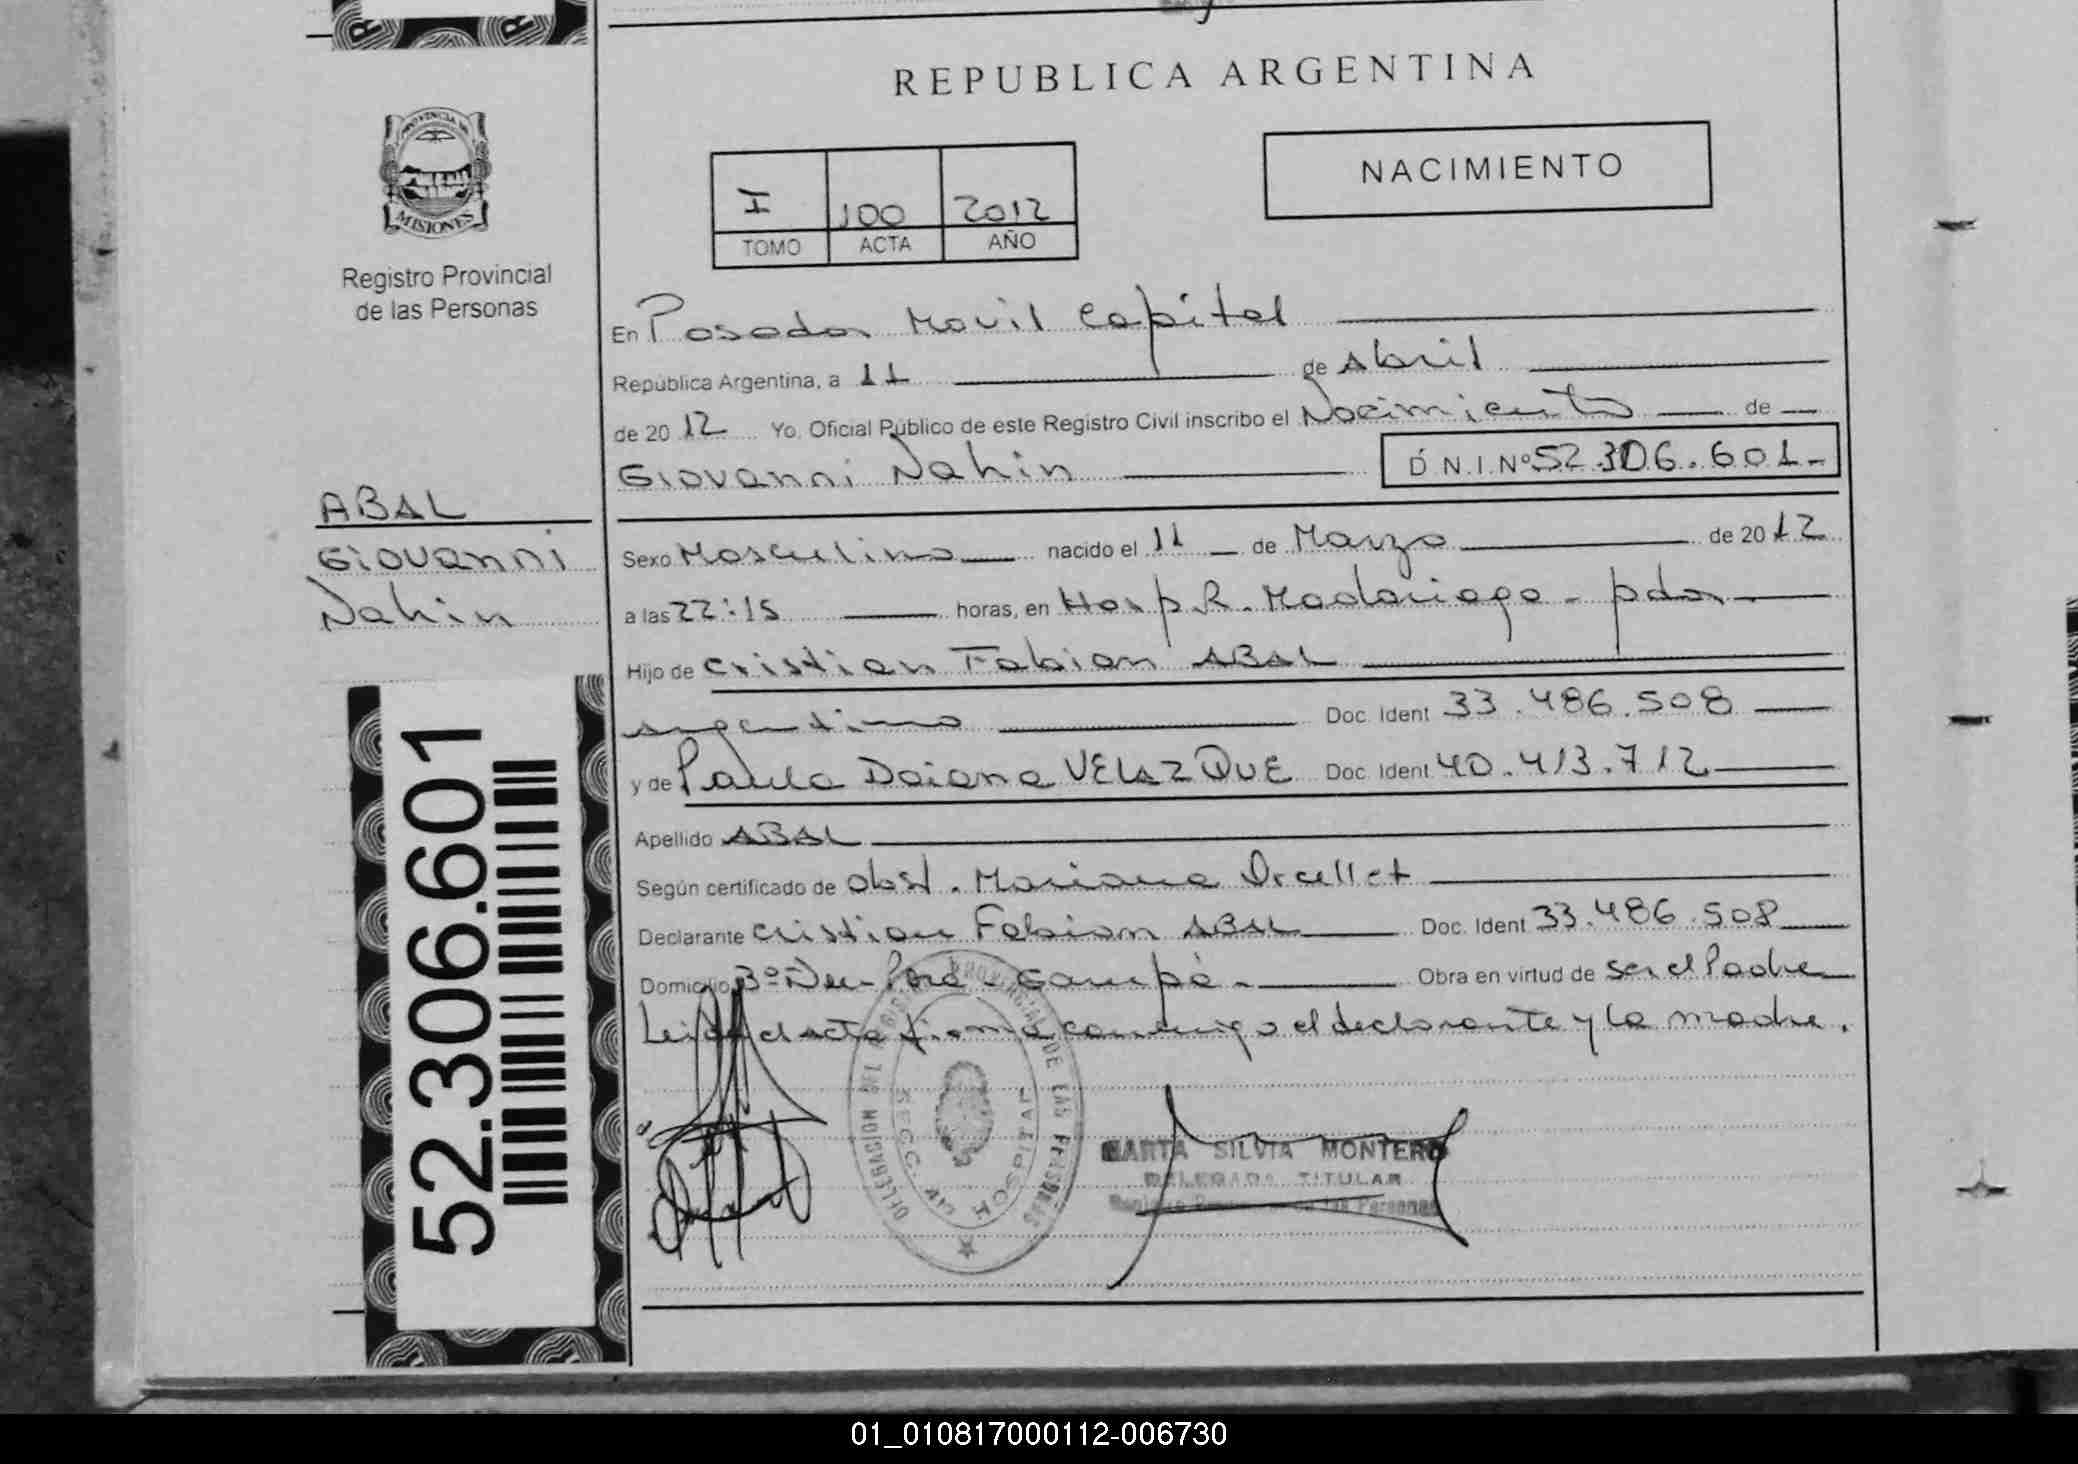 REPUBLICA ARGENTINA
PROVINCIA DE
MISIONES
Registro Provincial
de las Personas
NACIMIENTO
I 100 2012
TOMO ACTA AÑO
En Posadas Movil Capital
República Argentina, a 11 de Abril
de 2012 Yo, Oficial Público de este Registro Civil inscribo el Nacimiento de
Giovanni Nahin D.N.I.Nº 52.306.601-
ABAL
Giovanni
Nahin
Sexo Masculino nacido el 11 de Marzo de 2012
a las 22:15 horas, en Hosp. R. Madariaga - pdas
Hijo de Cristian Fabian ABAL
argentino Doc. Ident 33.486.508
y de Paula Daiana VELAZQUE Doc. Ident 40.413.712
Apellido ABAL
Según certificado de obst. Mariana
Declarante Cristian Fabian ABAL Doc. Ident 33.486.508
Domicilio Bº Ñu Porá - Garupá - Obra en virtud de ser el Padre
Leida el acta firma conmigo el declarante y la madre.
52.306.601
DELEGACION DEL REGISTRO PROVINCIAL DE LAS PERSONAS
MARTA SILVIA MONTERO
DELEGADA TITULAR
Registro Provincial de las Personas
01_010817000112-006730